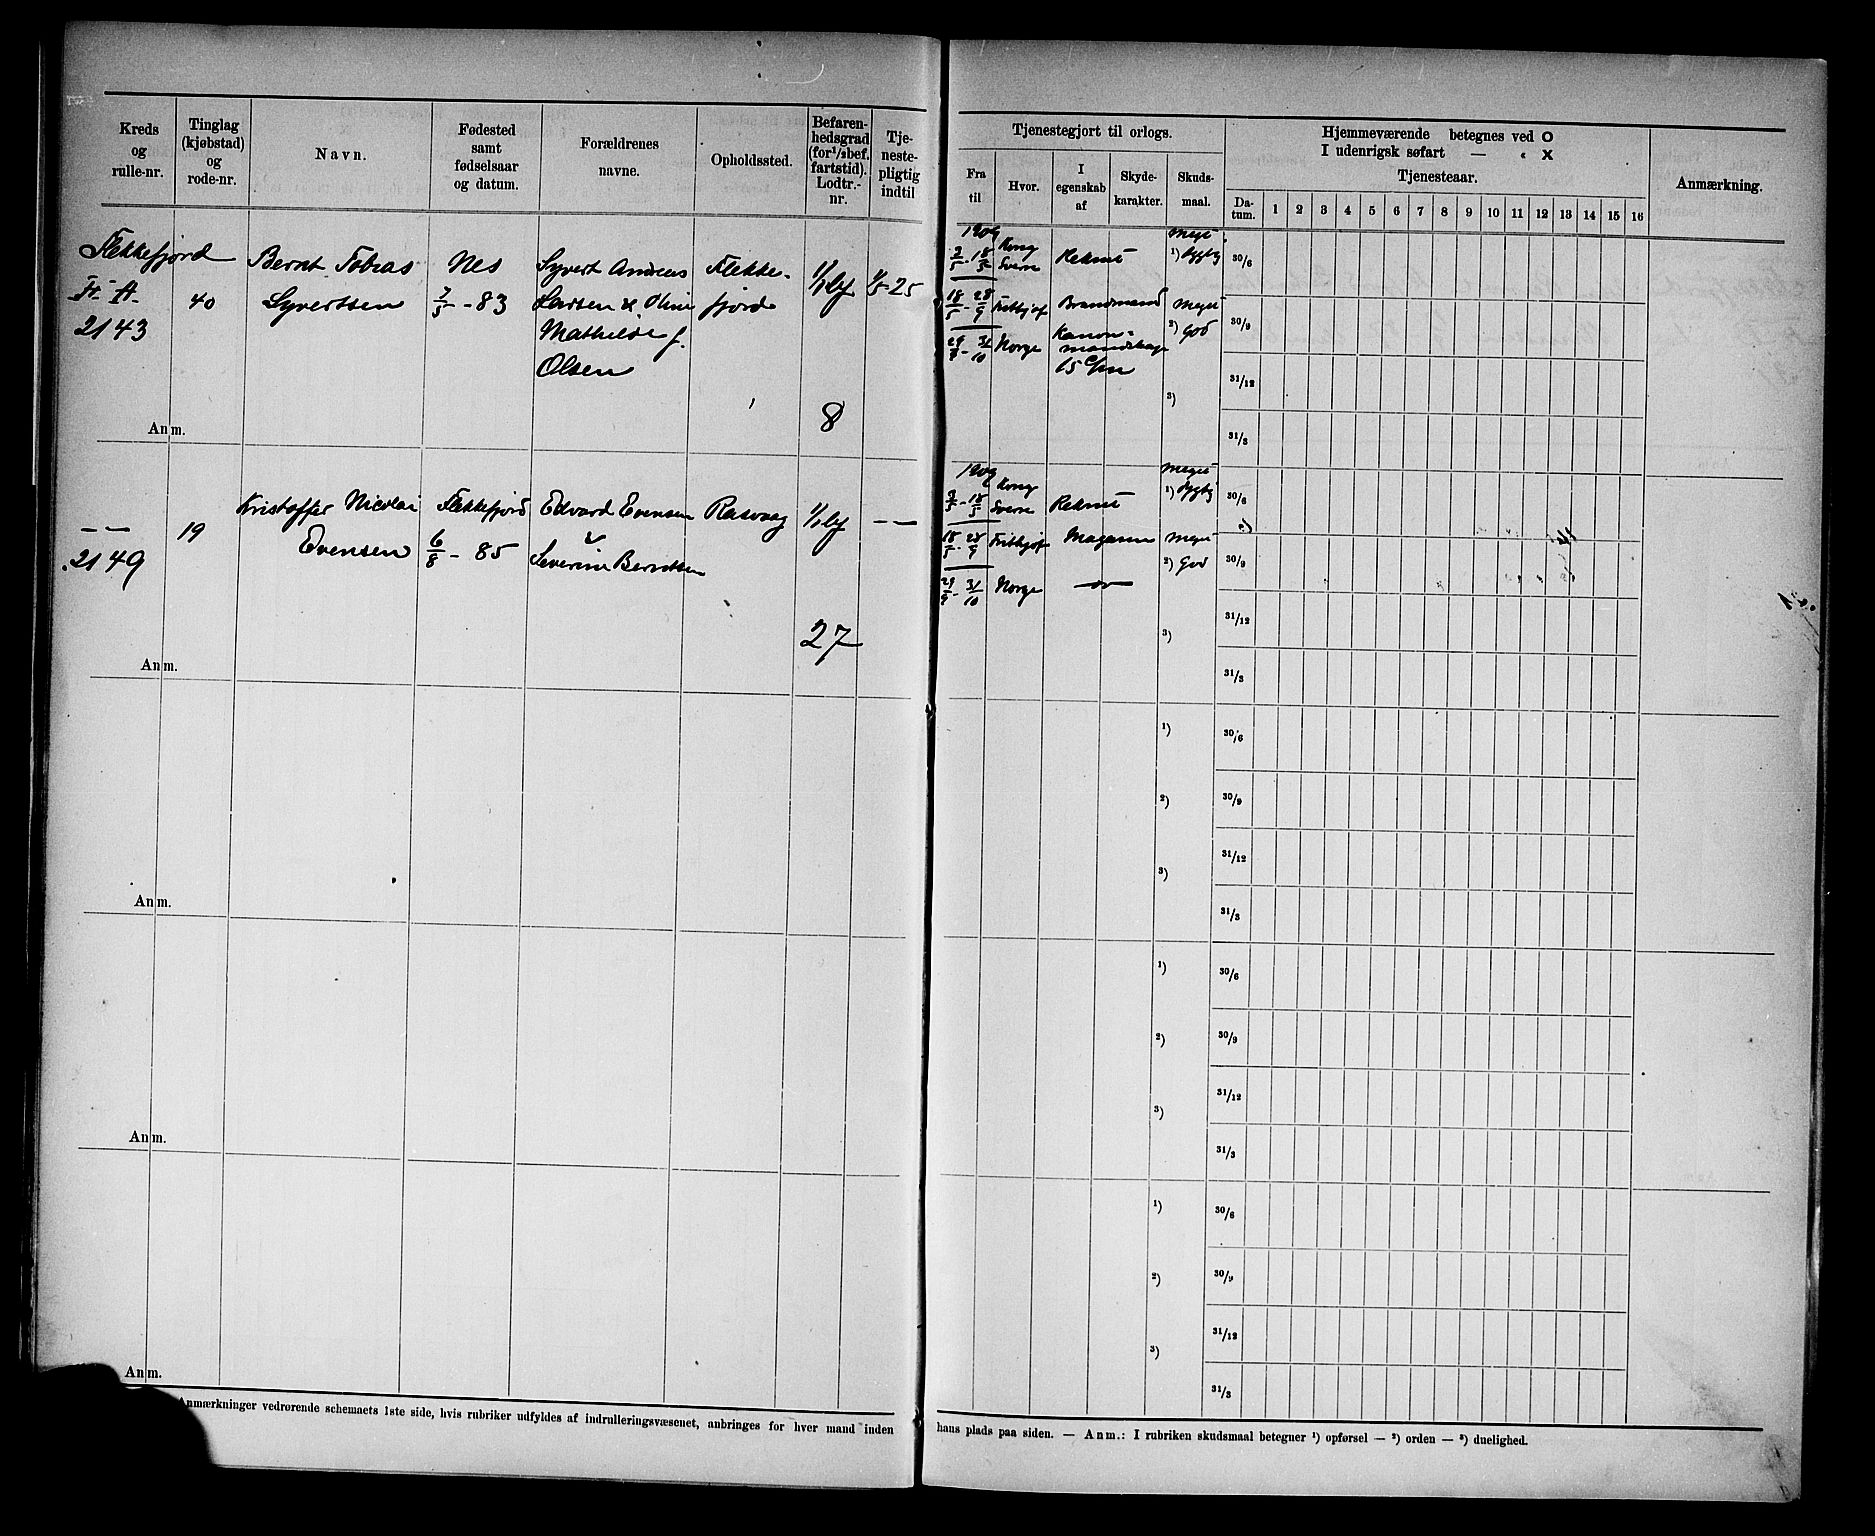 Kreds
og
rulle-nr.
Tinglag
(kjøbstad)
og
rode-nr.
Navn.
Fødested
samt
fødselsaar
og datum.
Forældrenes
navne.
Opholdssted.
Befaren-
hedsgrad
(for 1/2 bef.
fartstid).
Lodtr.-
nr.
Tje-
neste-
pligtig
indtil
Tjenestegjort til orlogs.
Fra
til
Hvor.
I
egenskab
af
Skyde-
karakter.
Skuds-
maal.
Hjemmeværende betegnes ved O
I udenrigsk søfart — " X
Tjenesteaar.
Da-
tum.
1 2 3 4 5 6 7 8 9 10 11 12 13 14 15 16
Anmærkning.
Flekkefjord
Fr. A.
2143
40
Bernt Tobias
Syvertsen
Nes
7/5 - 83
Syvert Andreas
Larsen & Oline
Mathilde f.
Olsen
Flekke-
fjord
1/1 bf
8
1/5-25
1909
2/5 - 18/5 Kong
Sverre Rekrut
18/5 - 28/9 Frithjof Brandmand
29/9 - 31/10 Norge Kanon-
mandskap
15 c/m
Meget
1) dygtig
Meget
2) God
3)
30/6
30/9
31/12
31/3
Anm.
— —
2149
19
Kristoffer Nicolai
Evensen
Flekkefjord
6/8 - 85
Edvard Evensen
&
Severine Berntsen
Rasvaag
1/1 bf
27
— —
1909
2/5 - 18/5 Kong
Sverre Rekrut
18/5 - 28/9 Frithjof Magasin
29/9 - 31/10 Norge —"—
Meget
1) dygtig
Meget
2) God
3)
30/6
30/9
31/12
31/3
Anm.
1)
2)
3)
30/6
30/9
31/12
31/3
Anm.
1)
2)
3)
30/6
30/9
31/12
31/3
Anm.
1)
2)
3)
30/6
30/9
31/12
31/3
Anm.
Anmærkninger vedrørende schemaets 1ste side, hvis rubriker udfyldes af indrulleringsvæsenet, anbringes for hver mand inden
hans plads paa siden. — Anm.: I rubriken skudsmaal betegner 1) opførsel — 2) orden — 3) duelighed.